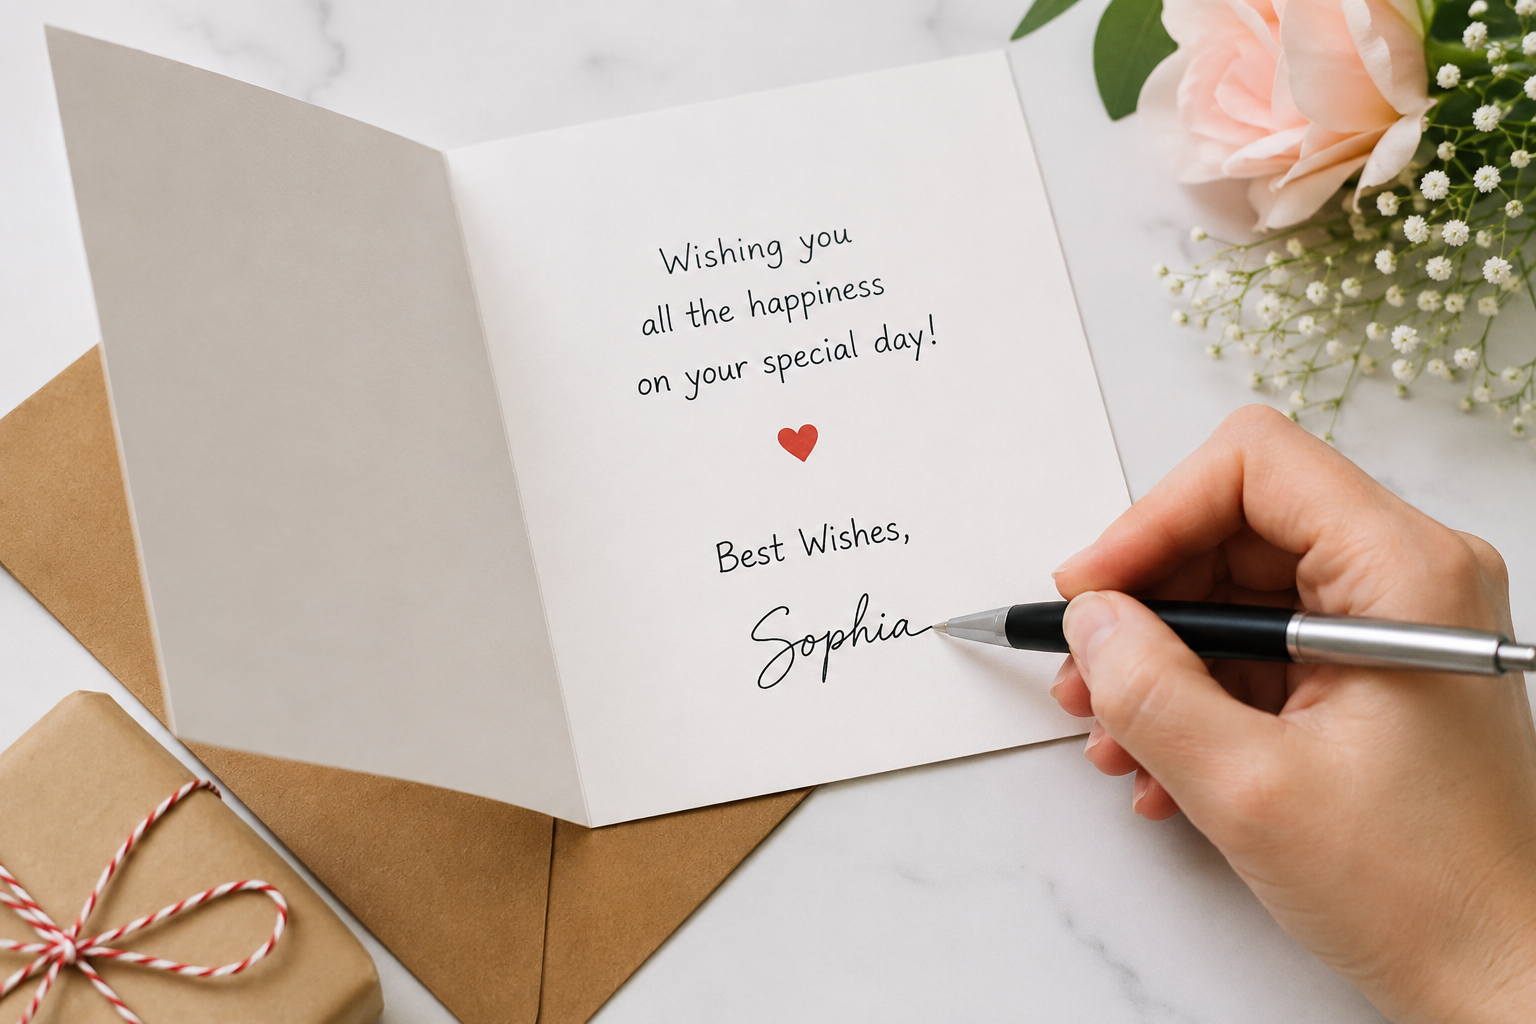 Wishing you
all the happiness
on your special day!
Best Wishes,
Sophia